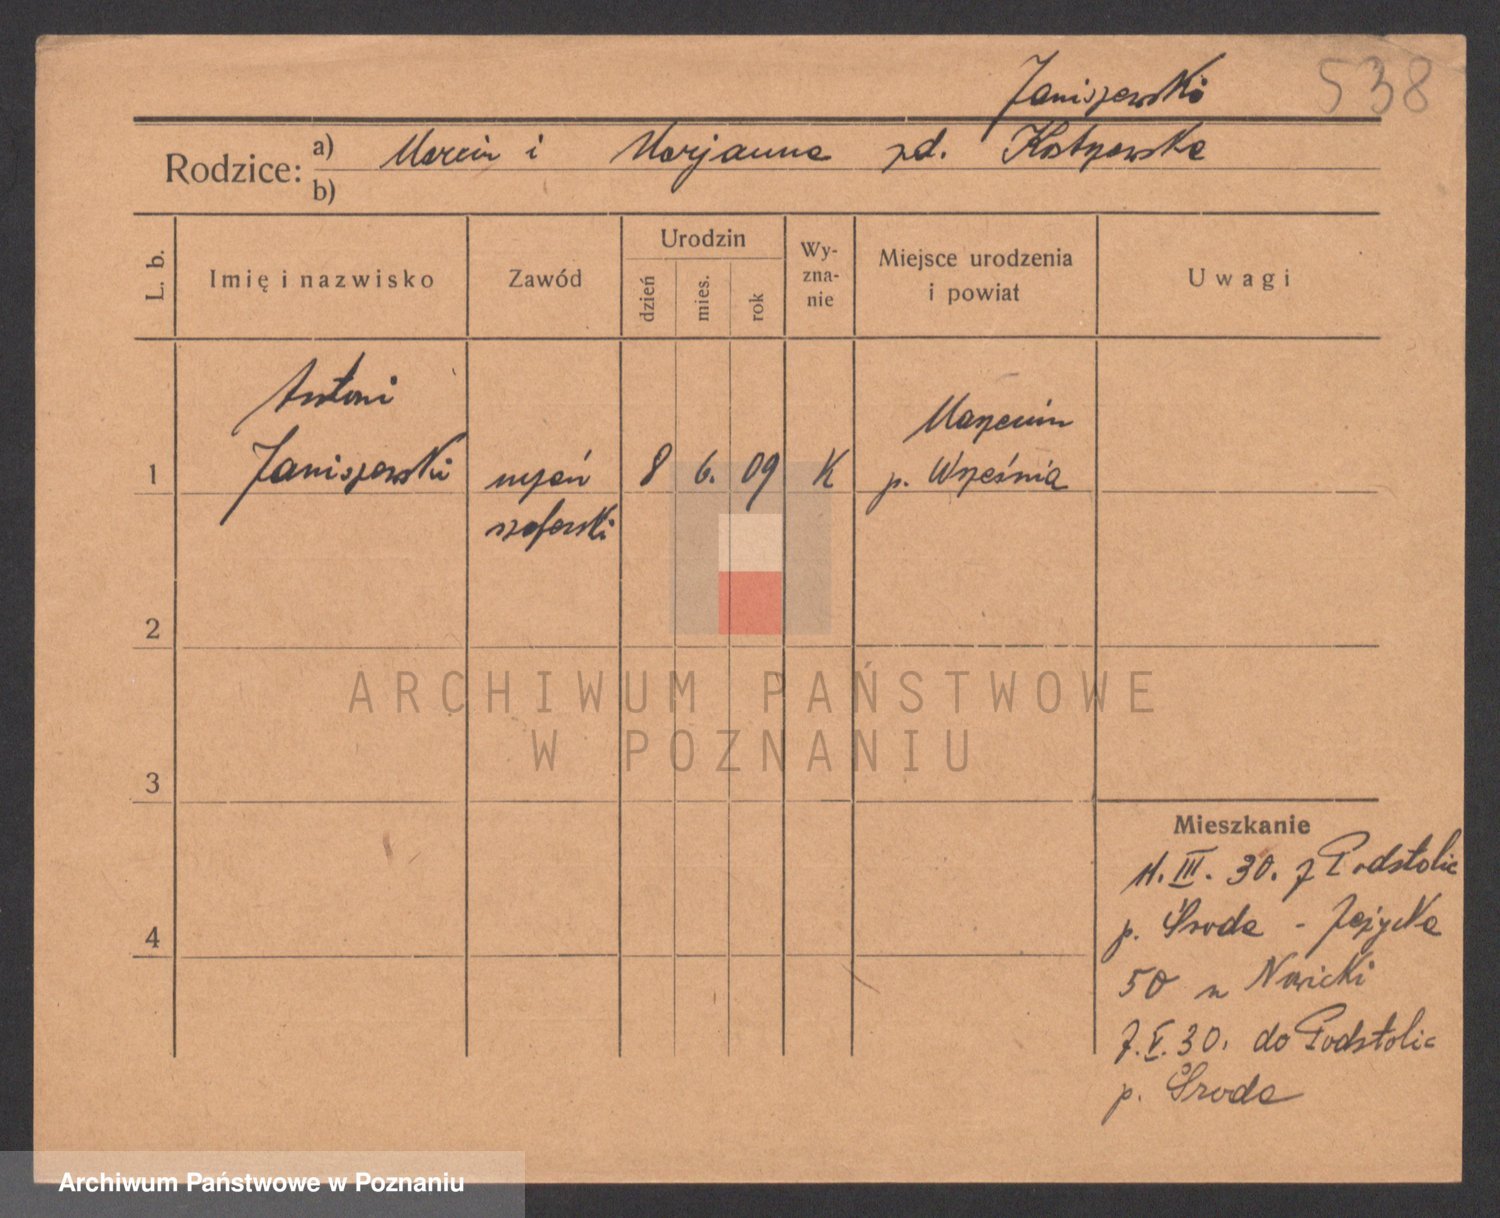 Janiszewski
538
Rodzice: a) Marcin i Marjanna zd. Kostrzewska
b)
L. b.
Imię i nazwisko
Zawód
Urodzin
dzień
mies.
rok
Wy-
zna-
nie
Miejsce urodzenia
i powiat
Uwagi
Antoni
1 Janiszewski
uczeń
szoferski
8 6. 09
K
Marzenin
p. Września
2
3
4
Mieszkanie
11. III. 30. z Podstolic
p. Środa - Jeżycka
50 u Nowicki
7. V. 30. do Podstolic
p. Środa
ARCHIWUM PAŃSTWOWE
W POZNANIU
Archiwum Państwowe w Poznaniu